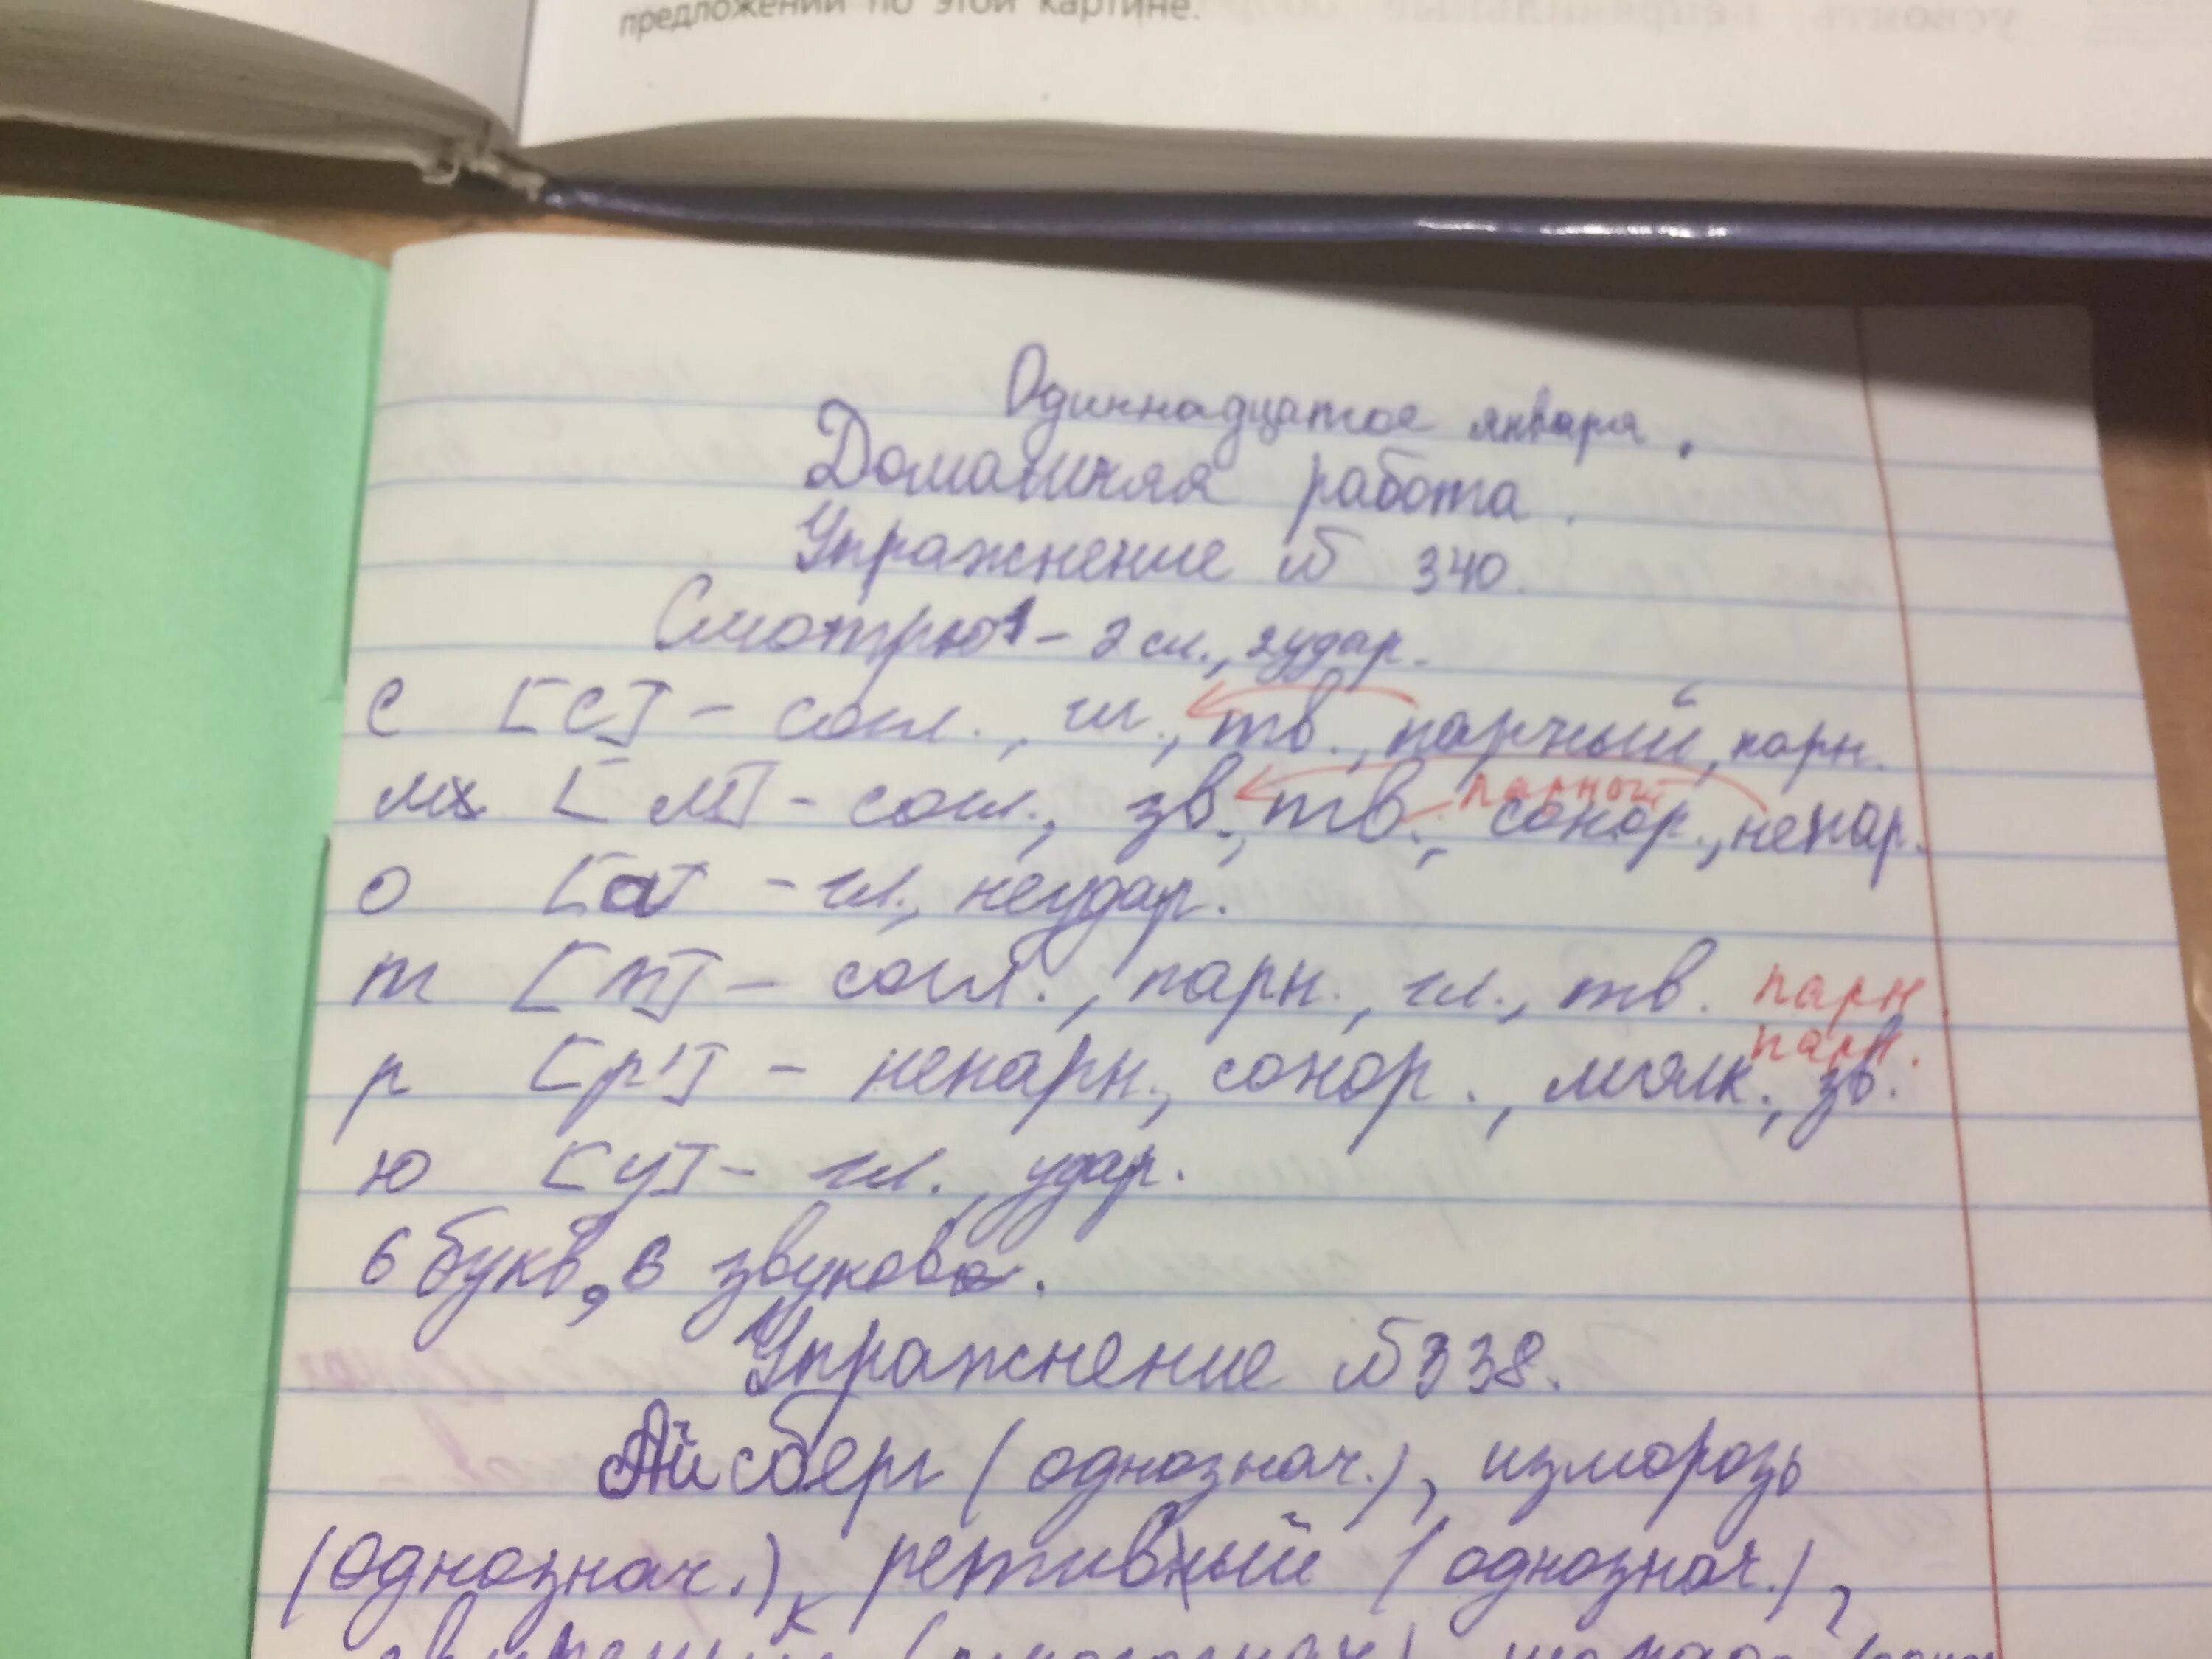 предложений по этой картине.
Одиннадцатое января.
Домашняя работа.
Упражнение № 340.
Смотрю - 2 сл., 2 удар.
с [с] - согл., гл., тв., парный, парн.
м [м] - согл., зв., тв., парный сонор., непар.
о [а] - гл., неудар.
т [т] - согл., парн., гл., тв. парн
р [р'] - непарн., сонор., мягк., парн. зв.
ю [у] - гл., удар.
6 букв, 6 звуков.
Упражнение №338.
Айсберг (однознач.), изморозь
(однознач.), ретивый (однознач.),